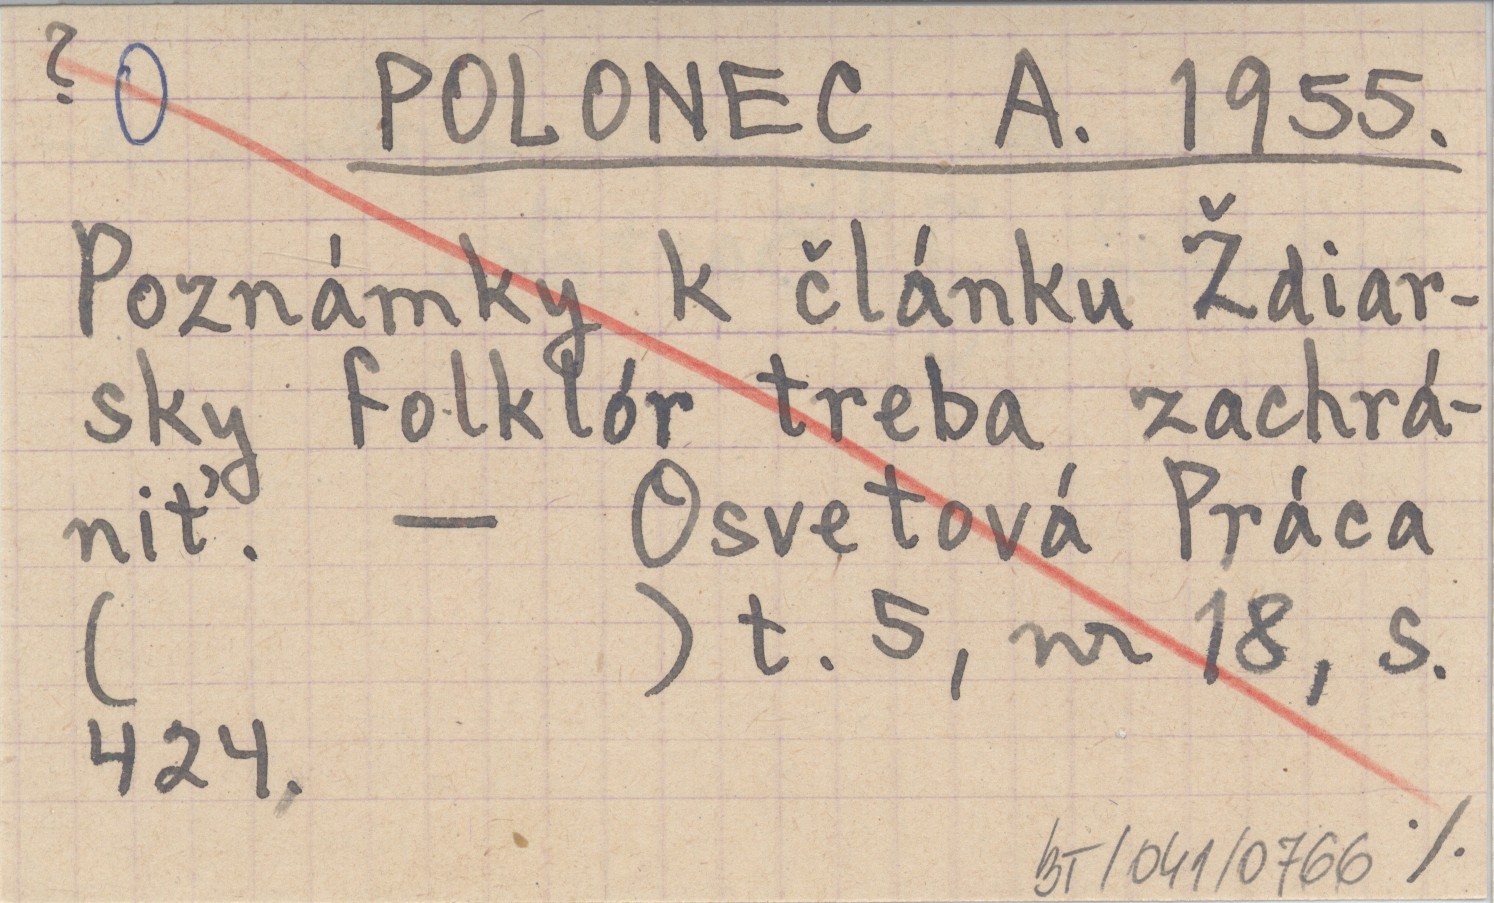 ? O POLONEC A. 1955.
Poznámky k článku Ždiar-
sky folklór treba zachrá-
niť. — Osvetová Práca
( ) t. 5, nr 18, s.
424.
BT/041/0766 ·/.